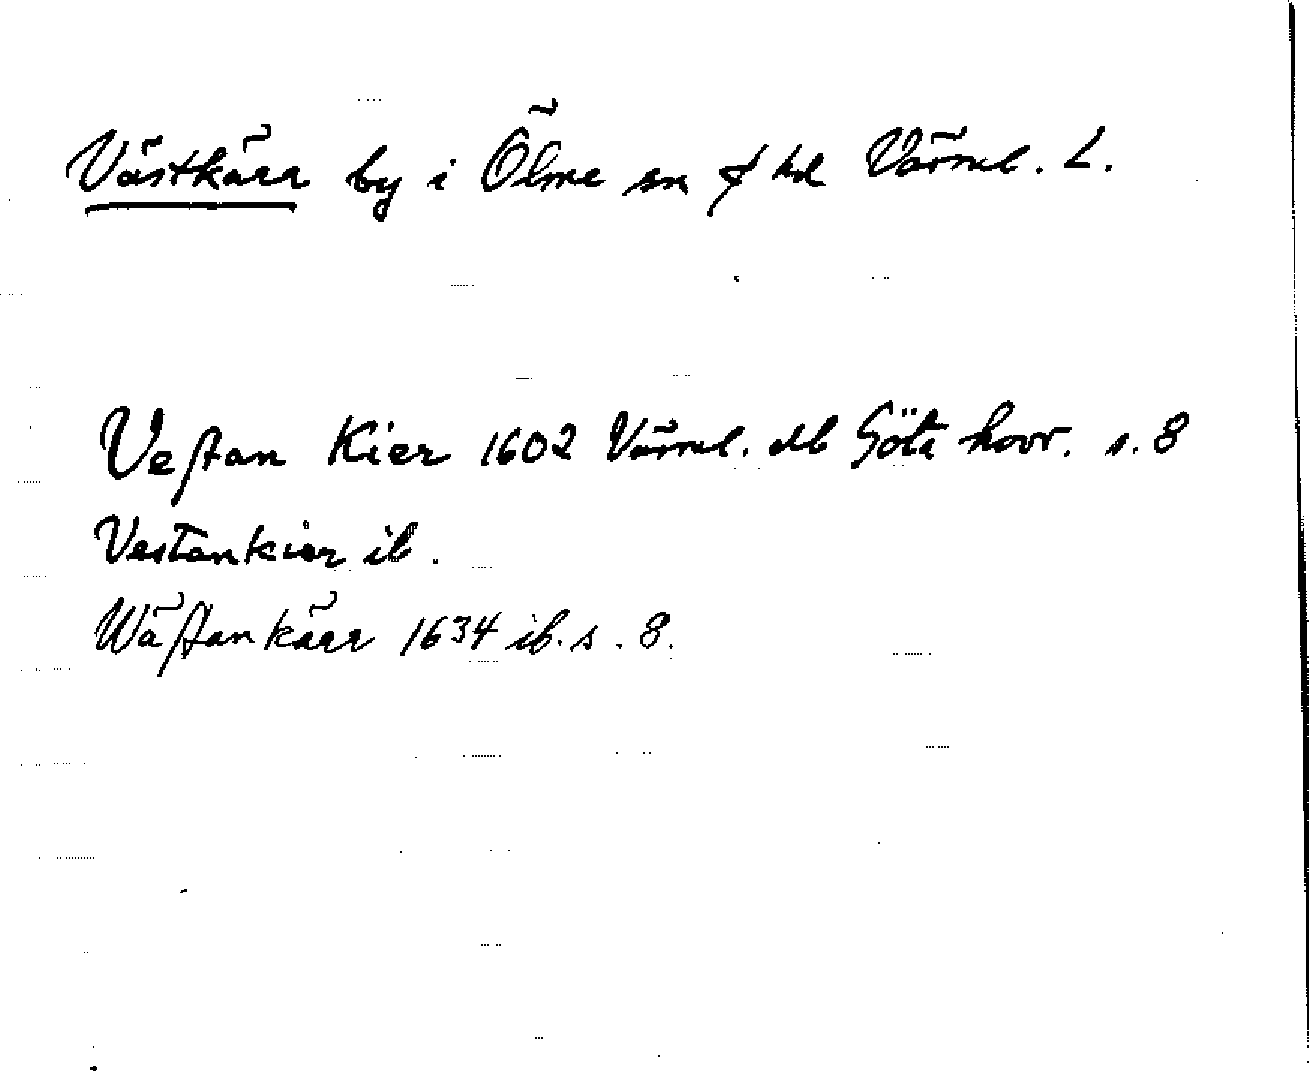 Västkärr by i Ölme sn & hd Värml. L.
Veſtan Kier 1602 Värml. db Göta hovr. s. 8
Vestankier ib.
Wäſtankärr 1634 ib. s. 8.